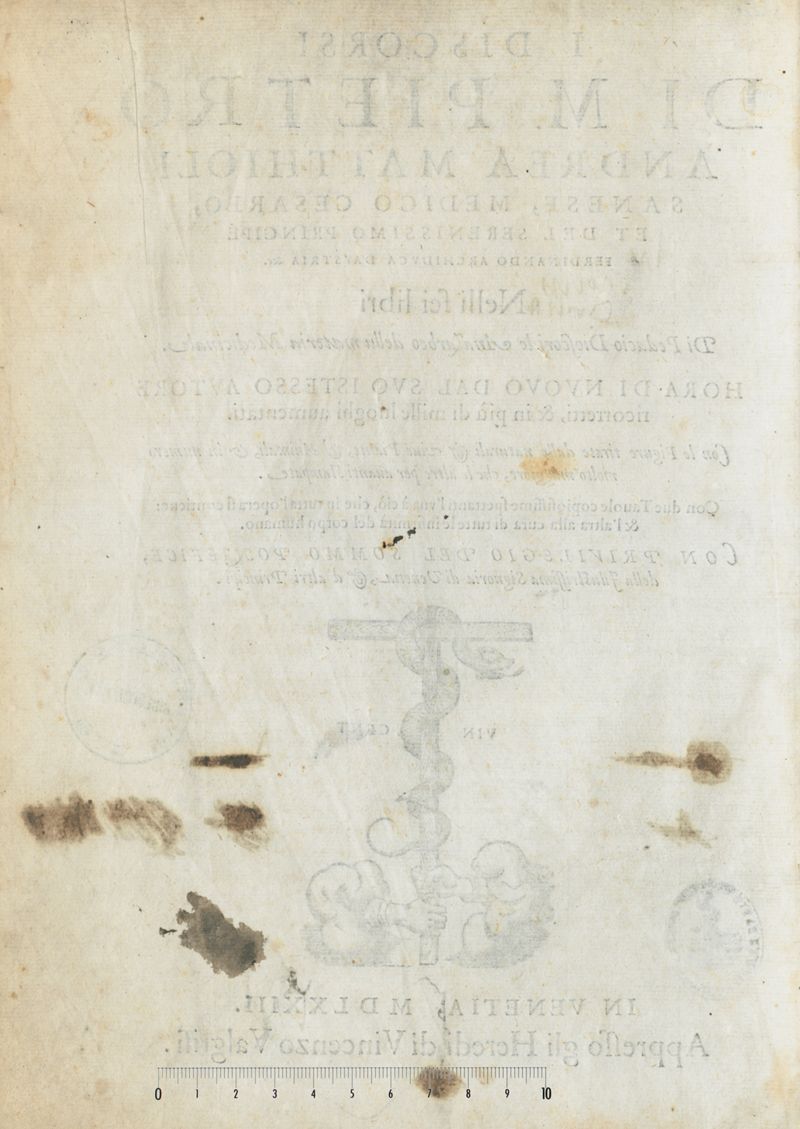 I DISCORSI
DI M. PIETRO
ANDREA MATTHIOLI
SANESE, MEDICO CESAREO,
ET DEL SERENISSIMO PRINCIPE
FERDINANDO ARCHIDVCA D'AVSTRIA &c.
Nelli sei libri
Di Pedacio Dioscoride Anazarbeo della materia Medicinale.
HORA DI NUOVO DAL SVO ISTESSO AVTORE
ricorretti, & in più di mille luoghi aumentati.
Con le Figure tirate dalle naturali & viue Piante, & Animali, & in numero
molto maggiore, che le altre per auanti stampate.
Con due Tauole copiosissime spettanti l'vna à ciò, che in tutta l'opera si contiene:
& l'altra alla cura di tutte le infirmità del corpo humano.
CON PRIVILEGIO DEL SOMMO PONTEFICE,
della Illustrissima Signoria di Venetia, & d'altri Principi.
VIN CENT
IN VENETIA, MDLXXIII.
Appresso gli Heredi di Vincenzo Valgrisi.
0 1 2 3 4 5 6 7 8 9 10